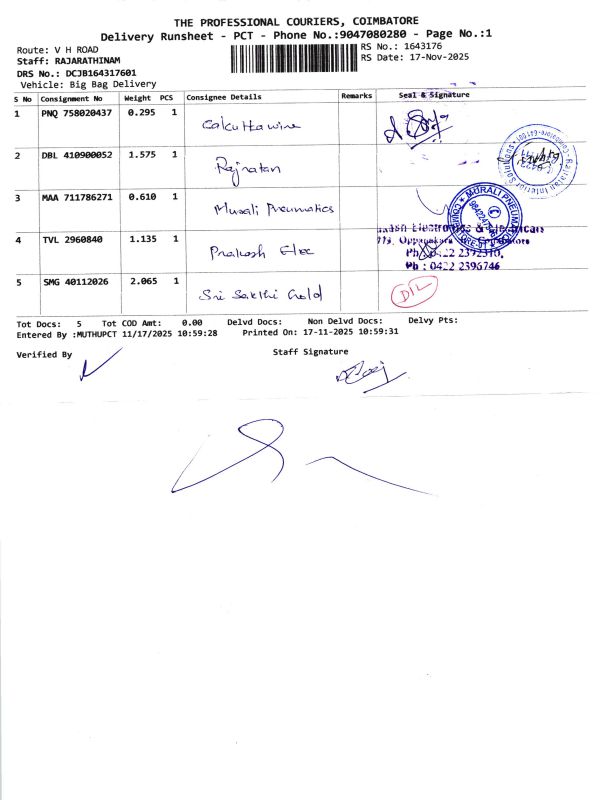 THE PROFESSIONAL COURIERS, COIMBATORE
Delivery Runsheet - PCT - Phone No.:9047080280 - Page No.:1
Route: V H ROAD
RS No.: 1643176
Staff: RAJARATHINAM
RS Date: 17-Nov-2025
DRS No.: DCJB164317601
Vehicle: Big Bag Delivery
S No Consignment No Weight PCS Consignee Details Remarks Seal & Signature
1 PNQ 758020437 0.295 1 Calcuttawire
2 DBL 410900052 1.575 1 Rajratan
3 MAA 711786271 0.610 1 Murali Pneumatics
4 TVL 2960840 1.135 1 Prakash Elec
5 SMG 40112026 2.065 1 Sri Sakthi Gold D/L
MURALI PNEUMA
Electronics & Electricals
Ph : 0422 2392310,
Ph : 0422 2396746
Tot Docs: 5 Tot COD Amt: 0.00 Delvd Docs: Non Delvd Docs: Delvy Pts:
Entered By :MUTHUPCT 11/17/2025 10:59:28 Printed On: 17-11-2025 10:59:31
Verified By
Staff Signature